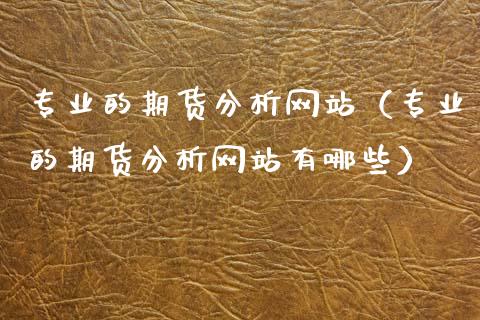 专业的期货分析网站（专业
的期货分析网站有哪些）